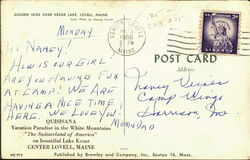 GOLDEN SKIES OVER KEZAR LAKE, LOVELL, MAINE.
MONDAY
HI NANCY!
HOW IS OUR GIRL?
ARE YOU HAVING FUN
AT CAMP? WE ARE
HAVING A NICE TIME
HERE. WE LOVE YOU!
MOM & DAD
QUISISANA
Vacation Paradise in the White Mountains
"The Switzerland of America"
on beautiful Lake Kezar
CENTER LOVELL, MAINE
CENTER LOVELL
1960
MAINE
POST CARD
Address
Nancy
Camp Wings
Harrison, Me.
Published by Bromley and Company, Inc., Boston 16, Mass.